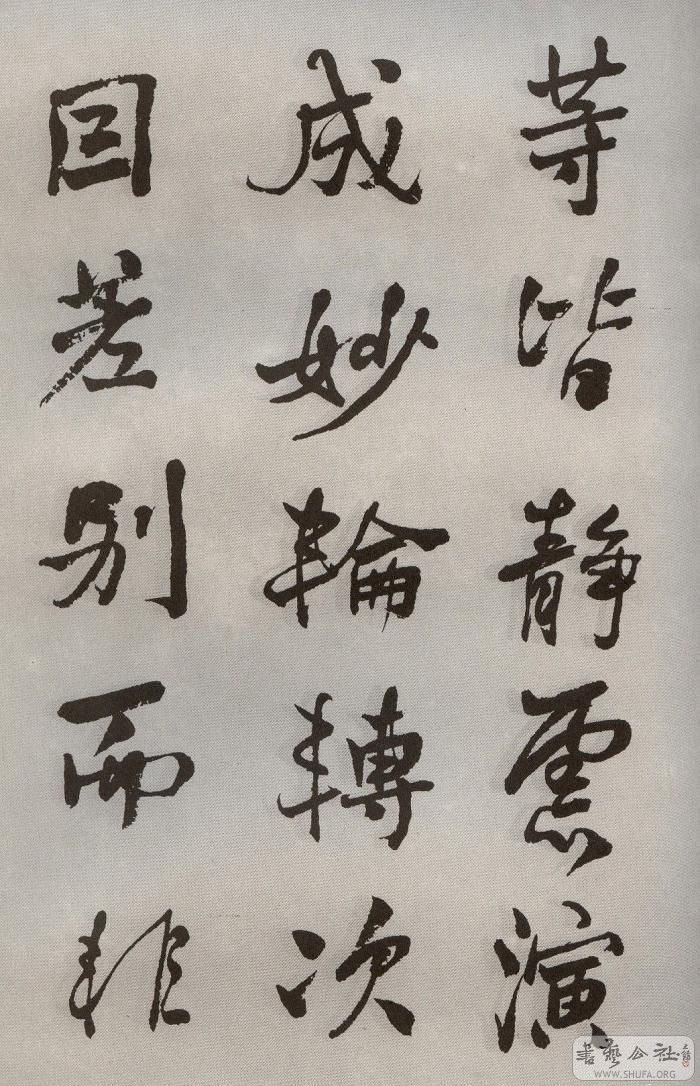 等皆静慮演
成妙輪轉次
因差别而非
書藝公社
WWW.SHUFA.ORG